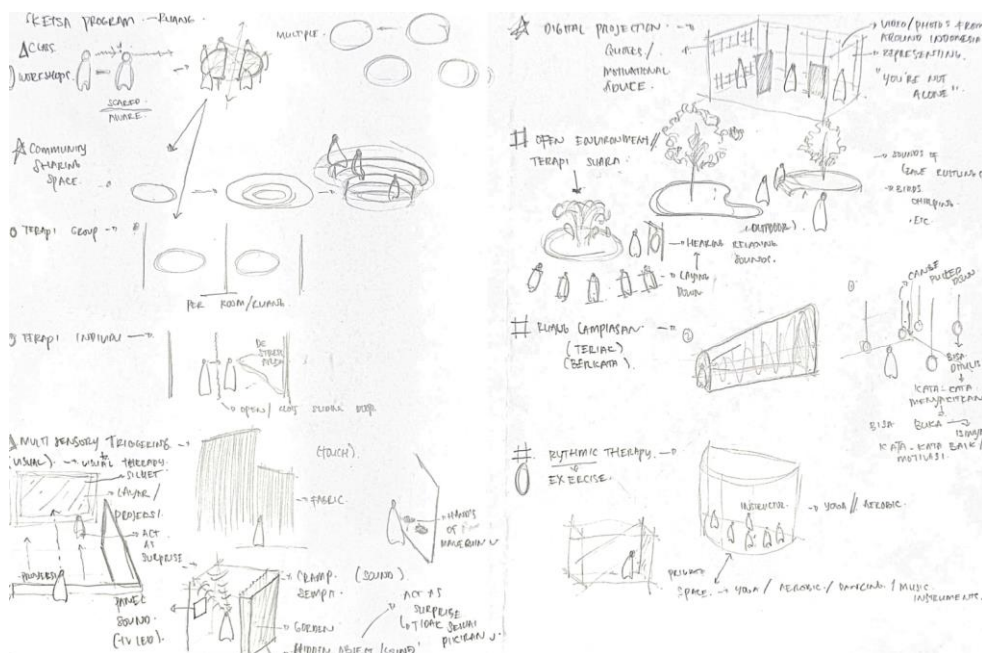 SKETSA PROGRAM RUANG
CLASS
WORKSHOPS.
SCARED
AWARE.
MULTIPLE.
COMMUNITY
SHARING
SPACE.
TERAPI GROUP
PER ROOM/RUANG
TERAPI INDIVIDU
OPEN/ SLIDING DOOR.
MULTI SENSORY TRIGGERING
(VISUAL). VISUAL THERAPY.
LAYAR/
PROYEKSI.
ACT
AS
SURPRISE
PANEL
SOUND
(TV LED)
(TOUCH)
FABRIC.
HANDS
OF
(SOUND)
GORDEN
ACT AS
SURPRISE
TIDAK SESUAI
PIKIRAN
DIGITAL PROJECTION.
QUOTES/
MOTIVATIONAL
ADVICE.
VIDEO/PHOTOS FROM
AROUND INDONESIA
REPRESENTING.
"YOU'RE NOT
ALONE".
OPEN ENVIRONMENT//
TERAPI SUARA
SOUNDS OF
RUSTLING
BIRDS
CHIRPING
ETC
(OUTDOOR)
HEARING RELAXING
SOUNDS.
LAYING
DOWN
RUANG LAMPIASAN
(TERIAK)
(BERKATA).
PULLED
DOWN
BISA
DITULIS
KATA-KATA
MENYAKITKAN
BISA BUKA ISINYA
KATA-KATA BAIK/
MOTIVASI.
RYTHMIC THERAPY.
EXERCISE.
INSTRUCTOR
YOGA // AEROBIC.
PRIVATE
SPACE. YOGA / AEROBIC / DANCING / MUSIC
INSTRUMENTS.